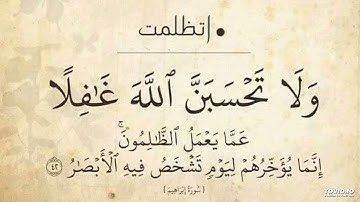 • إتظلمت
وَلَا تَحْسَبَنَّ ٱللَّهَ غَـٰفِلًا
عَمَّا يَعْمَلُ ٱلظَّـٰلِمُونَ ۚ
إِنَّمَا يُؤَخِّرُهُمْ لِيَوْمٍ تَشْخَصُ فِيهِ ٱلْأَبْصَـٰرُ ٤٢
[ سُورَةُ إِبْرَاهِيمَ ]
TOVID.IO